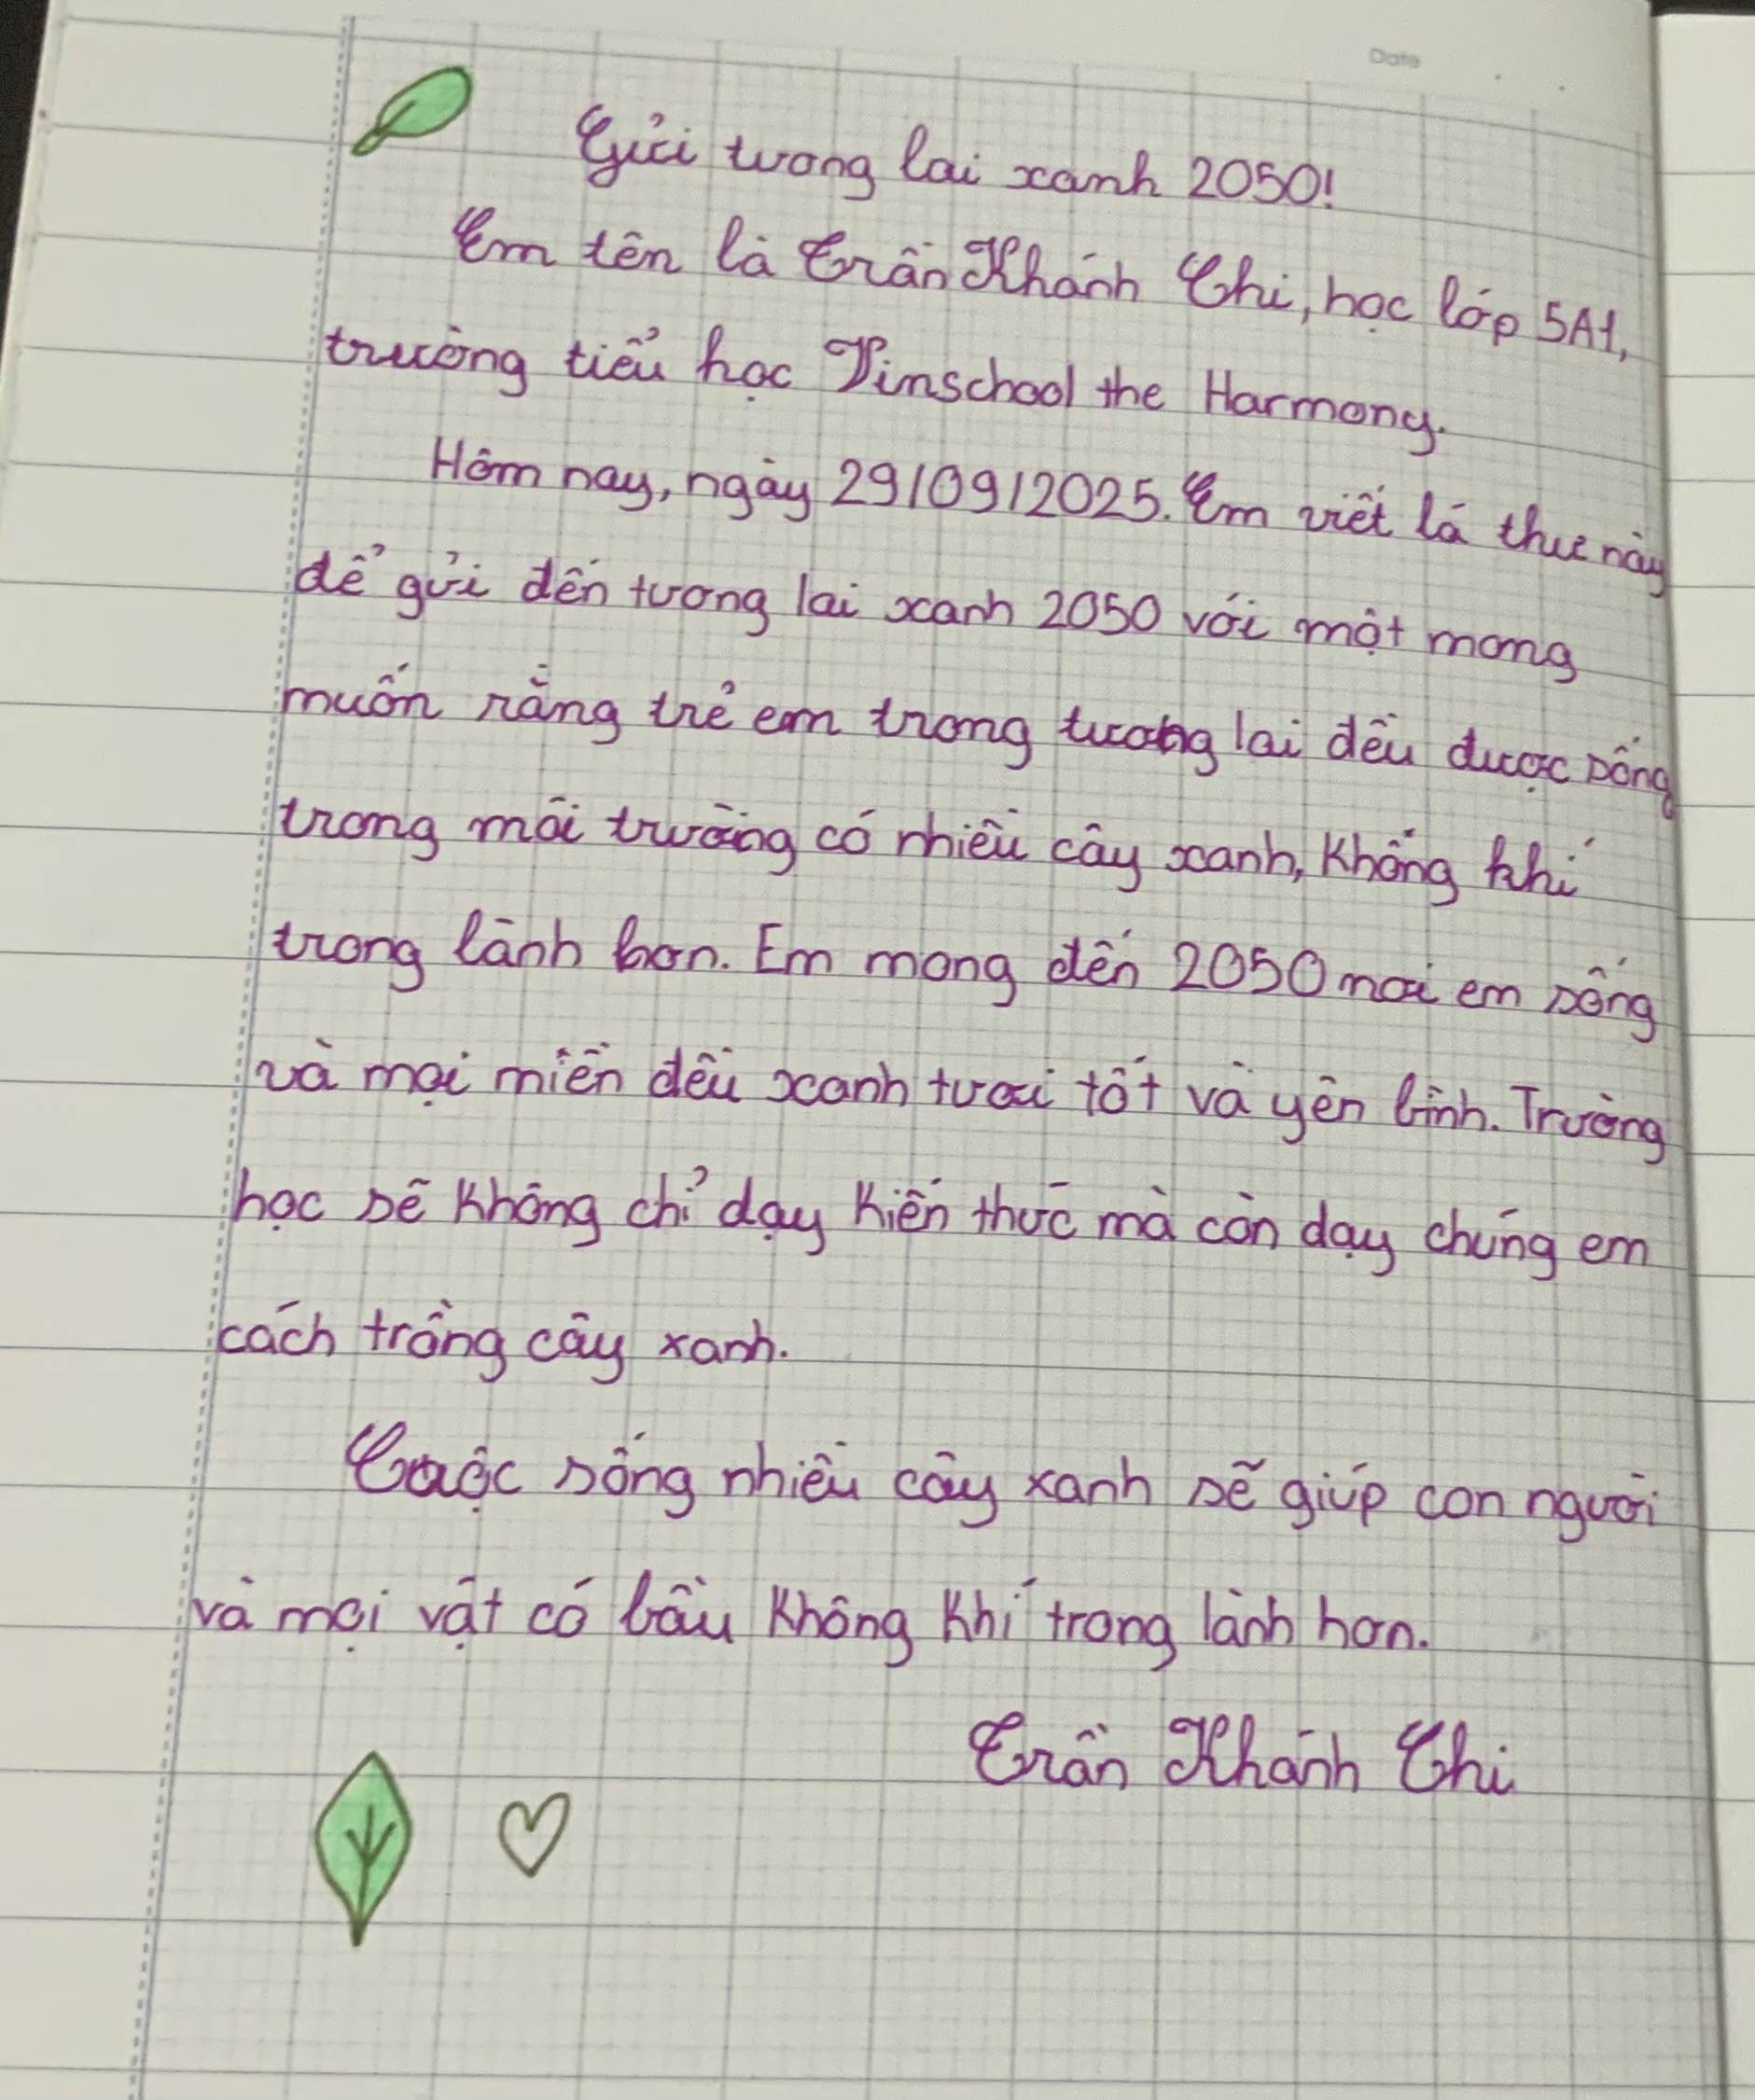 Date
Gửi tương lai xanh 2050!
Em tên là Trần Khánh Chi, học lớp 5A1,
trường tiểu học Vinschool the Harmony.
Hôm nay, ngày 29/09/2025. Em viết lá thư này
để gửi đến tương lai xanh 2050 với một mong
muốn rằng trẻ em trong tương lai đều được sống
trong môi trường có nhiều cây xanh, không khí
trong lành hơn. Em mong đến 2050 nơi em sống
và mọi miền đều xanh tươi tốt và yên bình. Trường
học sẽ không chỉ dạy kiến thức mà còn dạy chúng em
cách trồng cây xanh.
Cuộc sống nhiều cây xanh sẽ giúp con người
và mọi vật có bầu không khí trong lành hơn.
Trần Khánh Chi